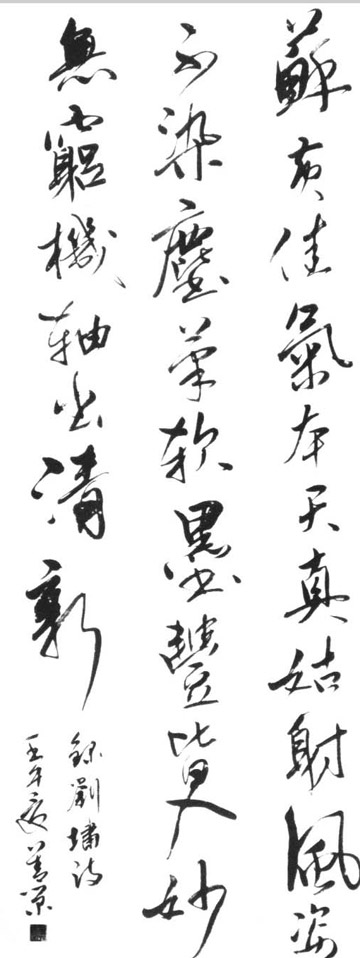 蘇黃佳氣本天真姑射風姿
不染塵筆軟墨豐皆入妙
無窮機軸出清新
錄劉墉詩
壬午夏